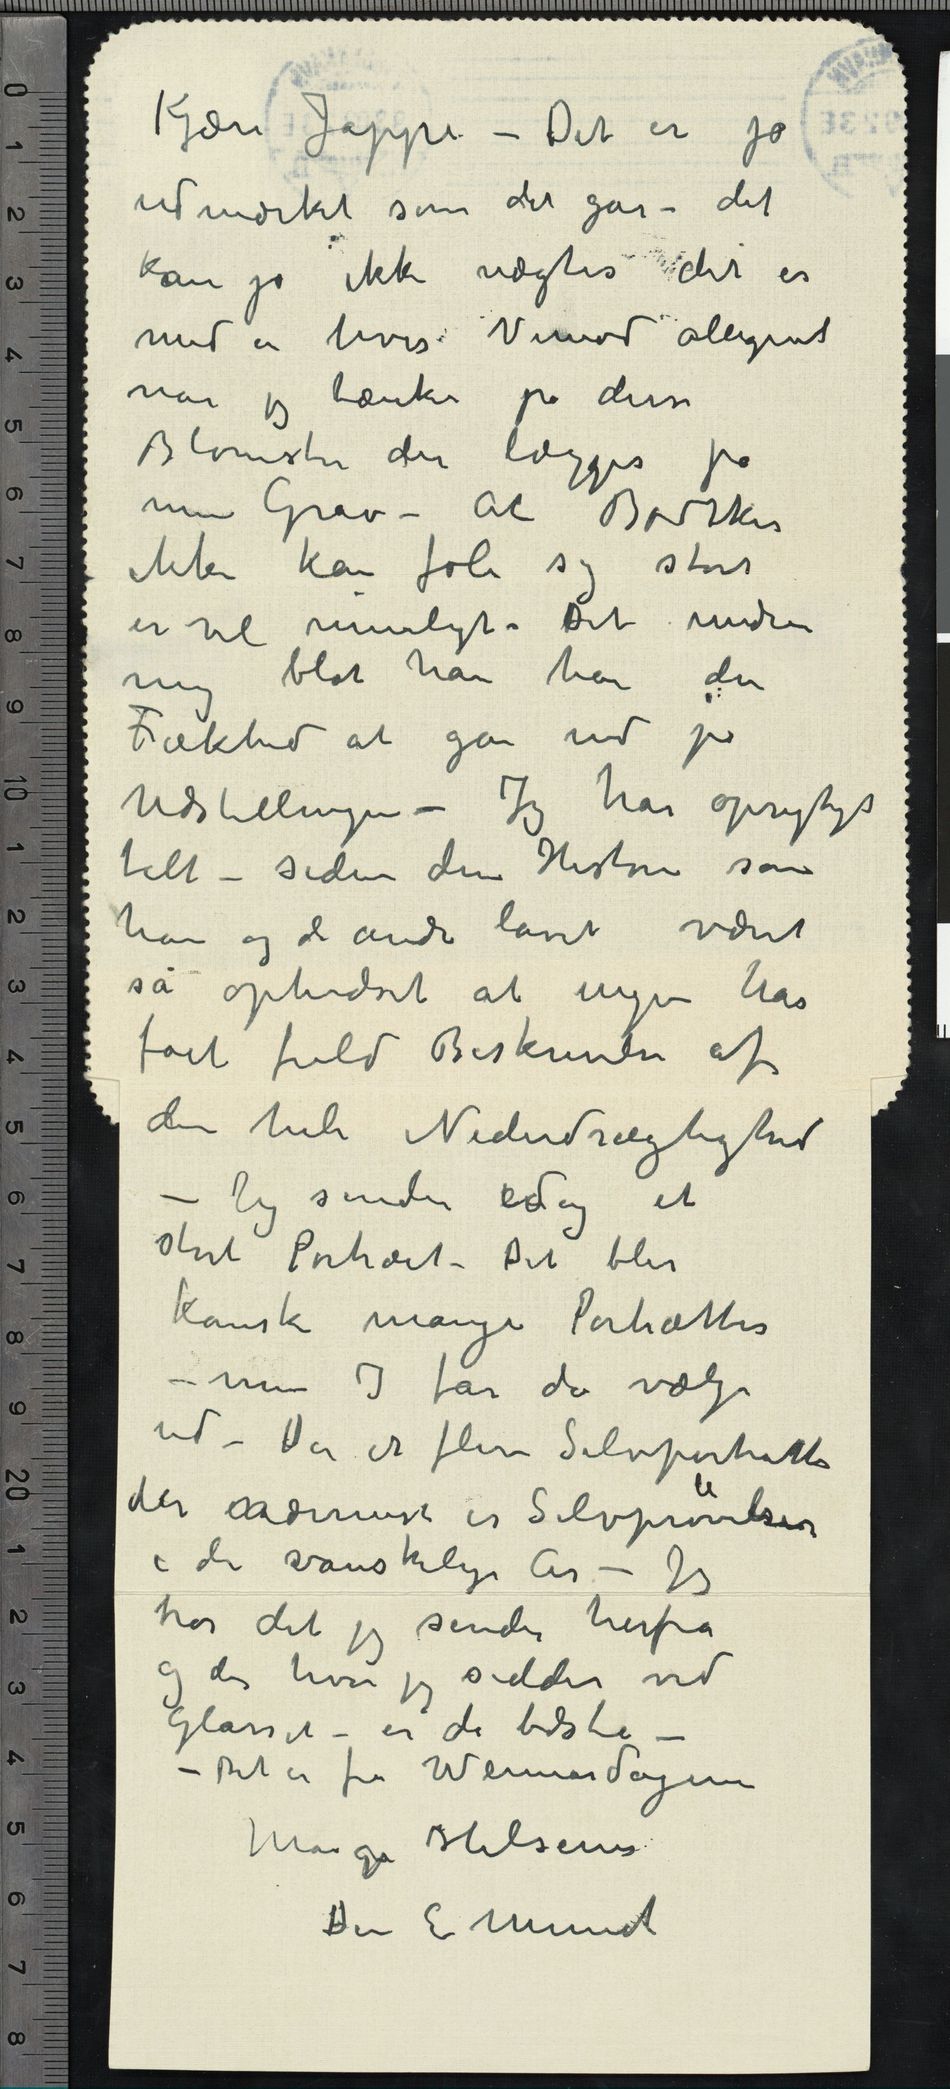 Kjære Jappe – Det er jo
udmærket som det går – det
kan jo ikke nægtes det er
med en hvis Vemod alligevel
når jeg tænker på disse
Blomster der lægges på
min Grav – At Bødtker
ikke kan føle sig stort
er vel rimeligt – Det undrer
mig blot han har den
Frækhed at gå ind på
Udstillingen – Jeg har oprigtigt
talt – siden den Historie som
han og de andre lavet været
så ophidset at ingen har
fået fuld Beskrivelse af
den hele Nederdrægtighed
– Jeg sender idag et
stort Portræt – Det blir
kanske mange Portrætter
– men I får da vælge
ud – Der er flere Selvportrætter
der nærmest er Selvprøvelser
i de vanskelige År – Jeg
tror det jeg sender herfra
og der hvor jeg sidder ved
Glasset – er de bedste –
– Det er fra Weimardagene
Mange Hilsener
Din E Munch